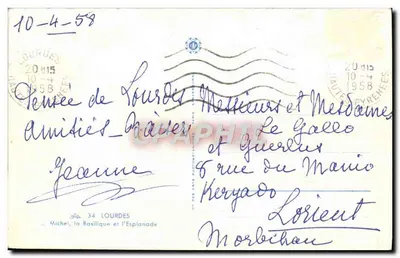 10-4-58
LOURDES
20H15
10-4
1958
HAUTES PYRENEES
20H15
10-4
1958
HAUTES PYRENEES
Pensée de Lourdes
Amitiés_Prières
Jeanne
34 LOURDES
Michel, la Basilique et l'Esplanade
Messieurs et Mesdames
Le Gallo
et Guerlus
8 rue du Manio
Keryado
Lorient
Morbihan
CPAPHIL